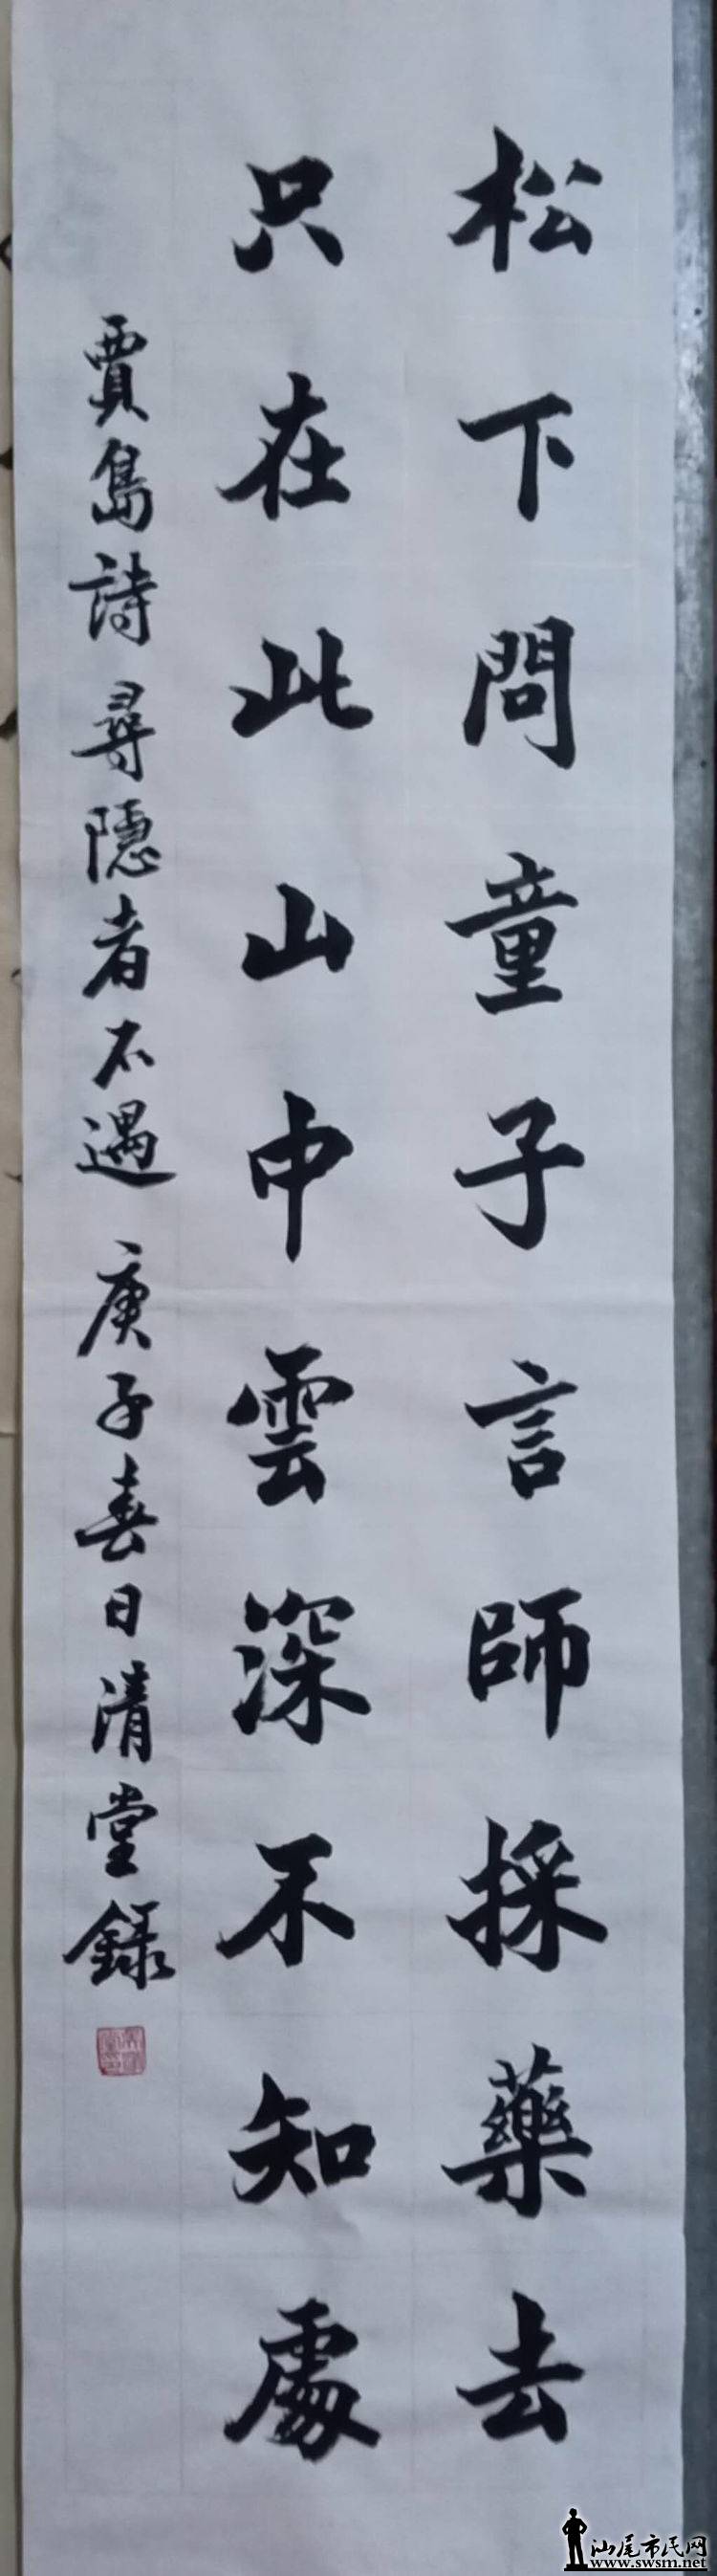 松下問童子言師採藥去
只在此山中雲深不知處
賈島詩尋隱者不遇 庚子春日清堂錄
汕尾市民网
www.swsm.net